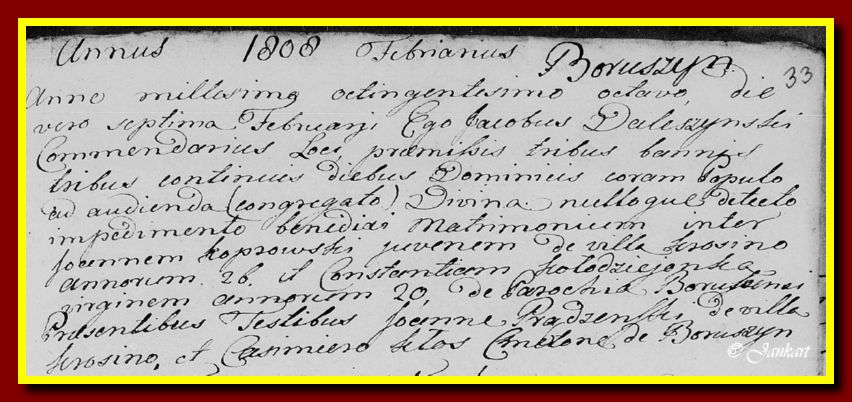 Annus 1808 Februarius Boruszyn.
33
Anno millesimo octingentesimo octavo, die
vero septima Februarij Ego Jacobus Daleszynski
Commendarius Loci, præmissis tribus bannis
tribus continuis diebus Dominicis coram Populo
ad audienda (congregato) Divina nulloque detecto
impedimento benedixi Matrimonium inter
Joannem Koprowski juvenem de villa Krosino
annorum 26. et Constantiam Kołodziejonka
virginem annorum 20, de Parochia Boruszinensi
Præsentibus Testibus Joanne Prądzenski de villa
Krosino, et Casimiero Kłos Cmetone de Boruszyn
© Jankart